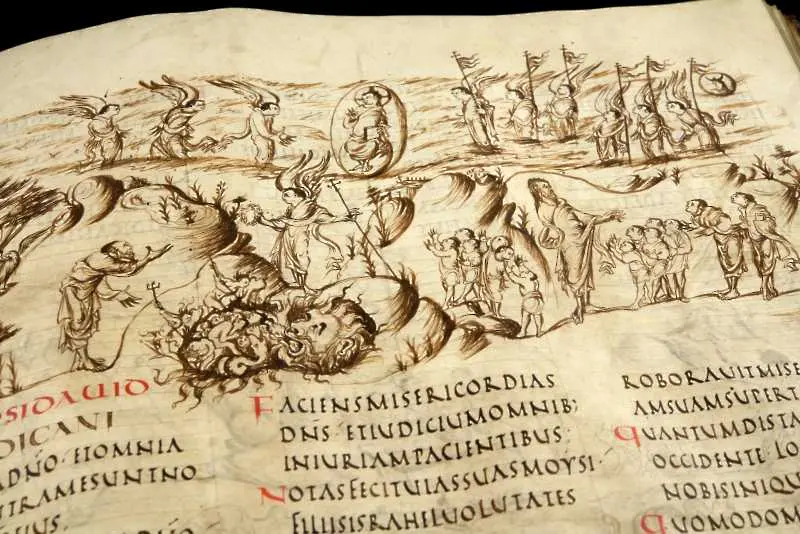 SIDAUID
DICANI
ADNO·ETOMNIA
TRAMESUNTNO
EIUS·
FACIENSMISERICORDIAS
DNS·ETIUDICIUMOMNIB;
INIURIAMPACIENTIBUS:
NOTASFECITUIASSUASMOYSI·
FILIISISRAHELUOLUTATES
ROBORAUITMISE
AMSUAMSUPERT
QUANTUMDISTA
OCCIDENTE LO
NOBISINIQU
QUOMODOM